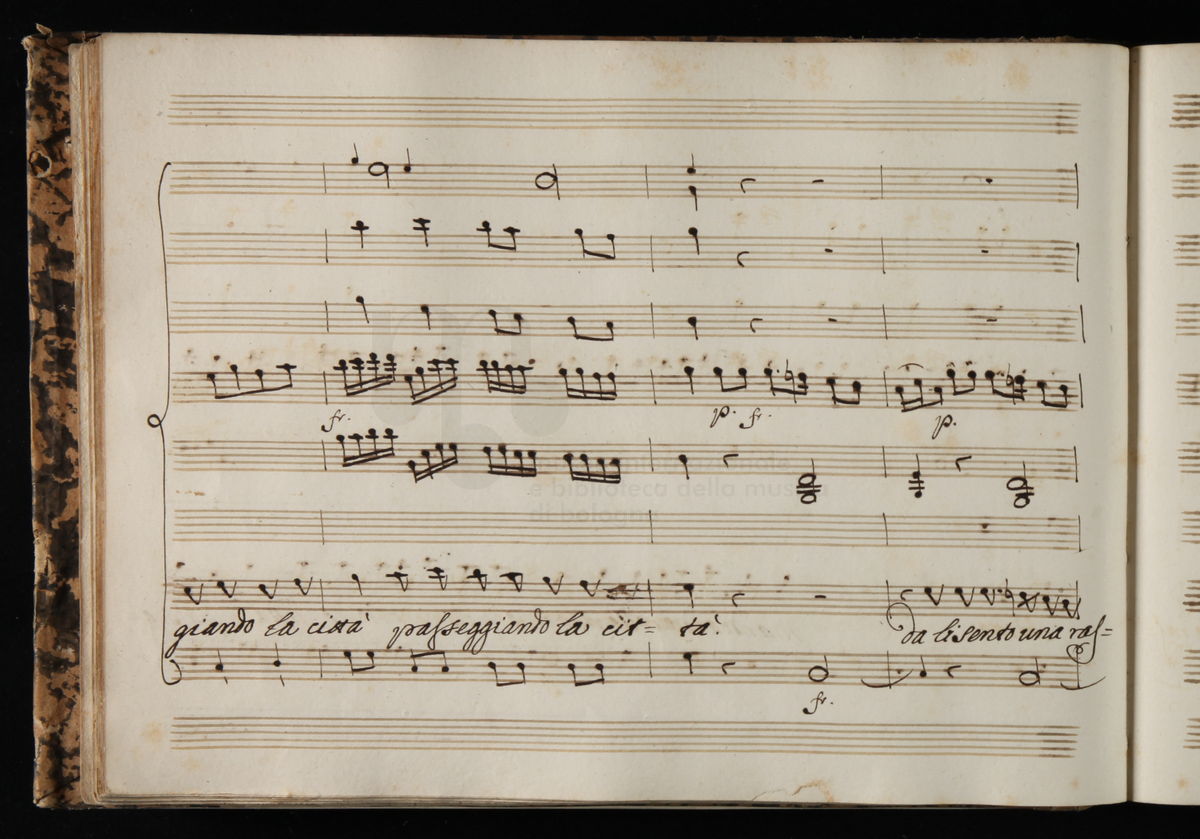 fr.
p. fr.
p.
e biblioteca della musica
di bologna
giando la città passeggiando la cit= tà. da li sento una ras=
fr.